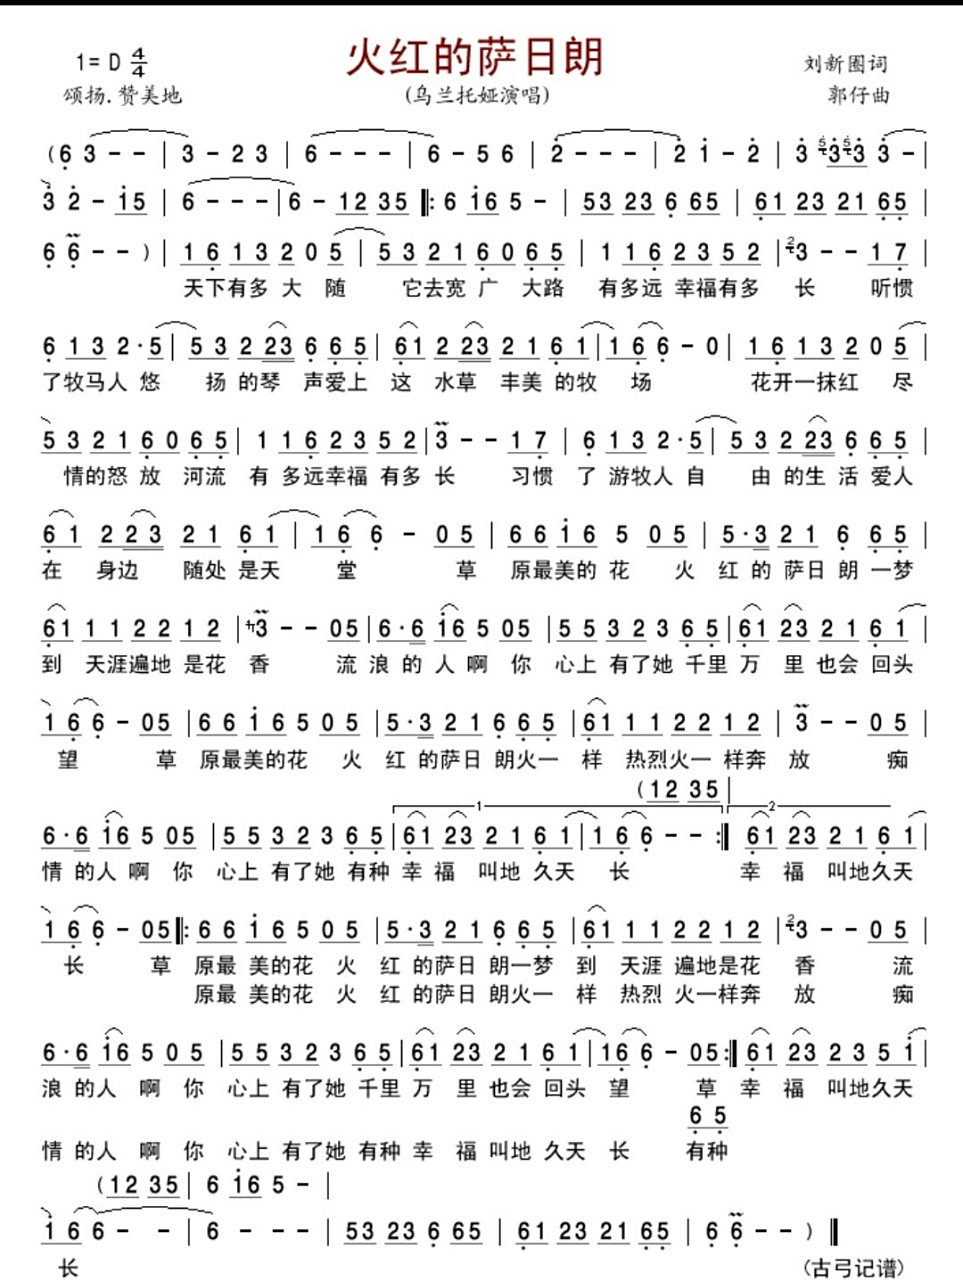 火红的萨日朗
1= D 4/4
刘新圈词
颂扬.赞美地
(乌兰托娅演唱)
郭仔曲
(6 3 - - | 3 - 2 3 | 6 - - - | 6 - 5 6 | 2 - - - | 2 1 - 2 | 3 5 3 5 3 3 - |
3 2 - 1 5 | 6 - - - | 6 - 12 35 ‖: 6 16 5 - | 53 23 6 65 | 61 23 21 65 |
6 6 - - ) | 1 6 1 3 2 0 5 | 5 3 2 1 6 0 6 5 | 1 1 6 2 3 5 2 | 2 3 - - 1 7 |
天下有多 大 随 它去宽 广 大路 有多远 幸福有多 长 听惯
6 1 3 2 · 5 | 5 3 2 23 6 6 5 | 61 2 23 2 1 6 1 | 1 6 6 - 0 | 1 6 1 3 2 0 5 |
了牧马人 悠 扬 的琴 声爱上 这 水草 丰美 的牧 场 花开一抹红 尽
5 3 2 1 6 0 6 5 | 1 1 6 2 3 5 2 | 3 - - 1 7 | 6 1 3 2 · 5 | 5 3 2 23 6 6 5 |
情的怒 放 河流 有 多远幸福 有多 长 习惯 了 游牧人 自 由 的生 活 爱人
6 1 2 2 3 2 1 6 1 | 1 6 6 - 0 5 | 6 6 1 6 5 0 5 | 5 · 3 2 1 6 6 5 |
在 身边 随处 是天 堂 草 原最美的 花 火 红 的 萨日 朗 一梦
61 1 1 2 2 1 2 | 3 - - 05 | 6 · 6 16 5 05 | 5 5 3 2 3 6 5 | 61 23 2 1 6 1 |
到 天涯遍地 是花 香 流 浪 的 人 啊 你 心上 有了她 千里 万 里 也会 回头
1 6 6 - 05 | 6 6 1 6 5 0 5 | 5 · 3 2 1 6 6 5 | 61 1 1 2 2 1 2 | 3 - - 0 5 |
望 草 原最美的花 火 红 的萨日 朗火一 样 热烈火一 样奔 放 痴
(12 35 |
1
2
6 · 6 16 5 05 | 5 5 3 2 3 6 5 | 61 23 2 1 6 1 | 1 6 6 - - :‖ 61 23 2 1 6 1 |
情 的人 啊 你 心上 有了她 有种 幸 福 叫地 久天 长 幸 福 叫地久天
1 6 6 - 05 ‖: 6 6 1 6 5 0 5 | 5 · 3 2 1 6 6 5 | 61 1 1 2 2 1 2 | 2 3 - - 0 5 |
长 草 原最 美的花 火 红 的萨日 朗一梦 到 天涯 遍地是花 香 流
原最 美的花 火 红 的萨日 朗火一 样 热烈 火一样奔 放 痴
6 · 6 16 5 0 5 | 5 5 3 2 3 6 5 | 61 23 2 1 6 1 | 16 6 - 05 :‖ 61 23 2 3 5 i |
浪 的人 啊 你 心上 有了她 千里 万 里 也会 回头 望 草 幸 福 叫地久天
6 5
情 的人 啊 你 心上 有了她 有种 幸 福 叫地 久天 长 有种
(12 35 | 6 16 5 - |
1 6 6 - - | 6 - - - | 53 23 6 65 | 61 23 21 65 | 6 6 - - ) ‖
长
(古弓记谱)